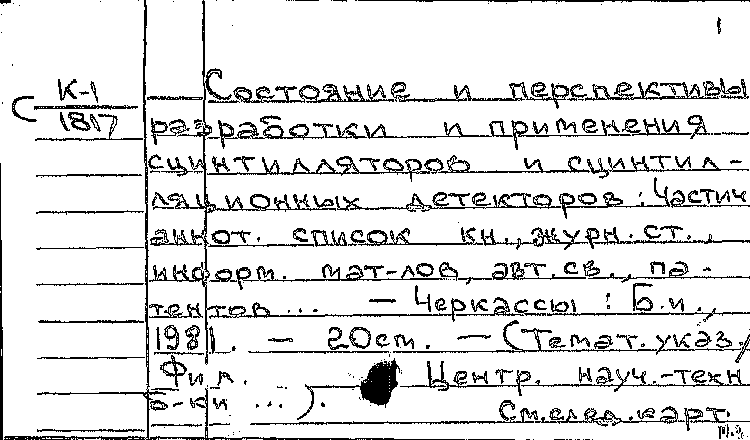 1
К-1
1817
Состояние и перспективы
разработки и применения
сцинтилляторов и сцинтил-
ляционных детекторов : Частич
аннот. список кн., журн. ст.,
информ. мат-лов, авт. св., па-
тентов ... — Черкассы : Б.и.,
1981. — 20 см. — (Темат. указ./
Фил. Центр. науч.-техн
б-ки ...).
См. след. карт.